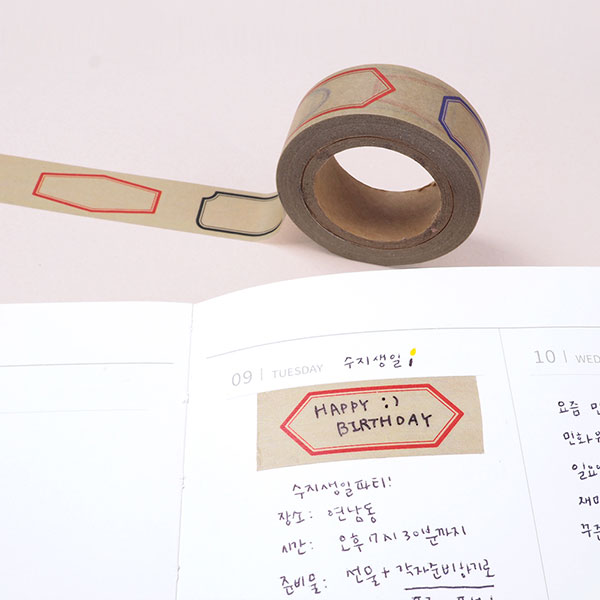 09 | TUESDAY 수지생일
HAPPY :)
BIRTHDAY
수지생일파티!
장소: 연남동
시간: 오후 7시 30분까지
준비물: 선물 + 각자준비하기로
10 | WED
요즘
민화
일요
재미
꾸준